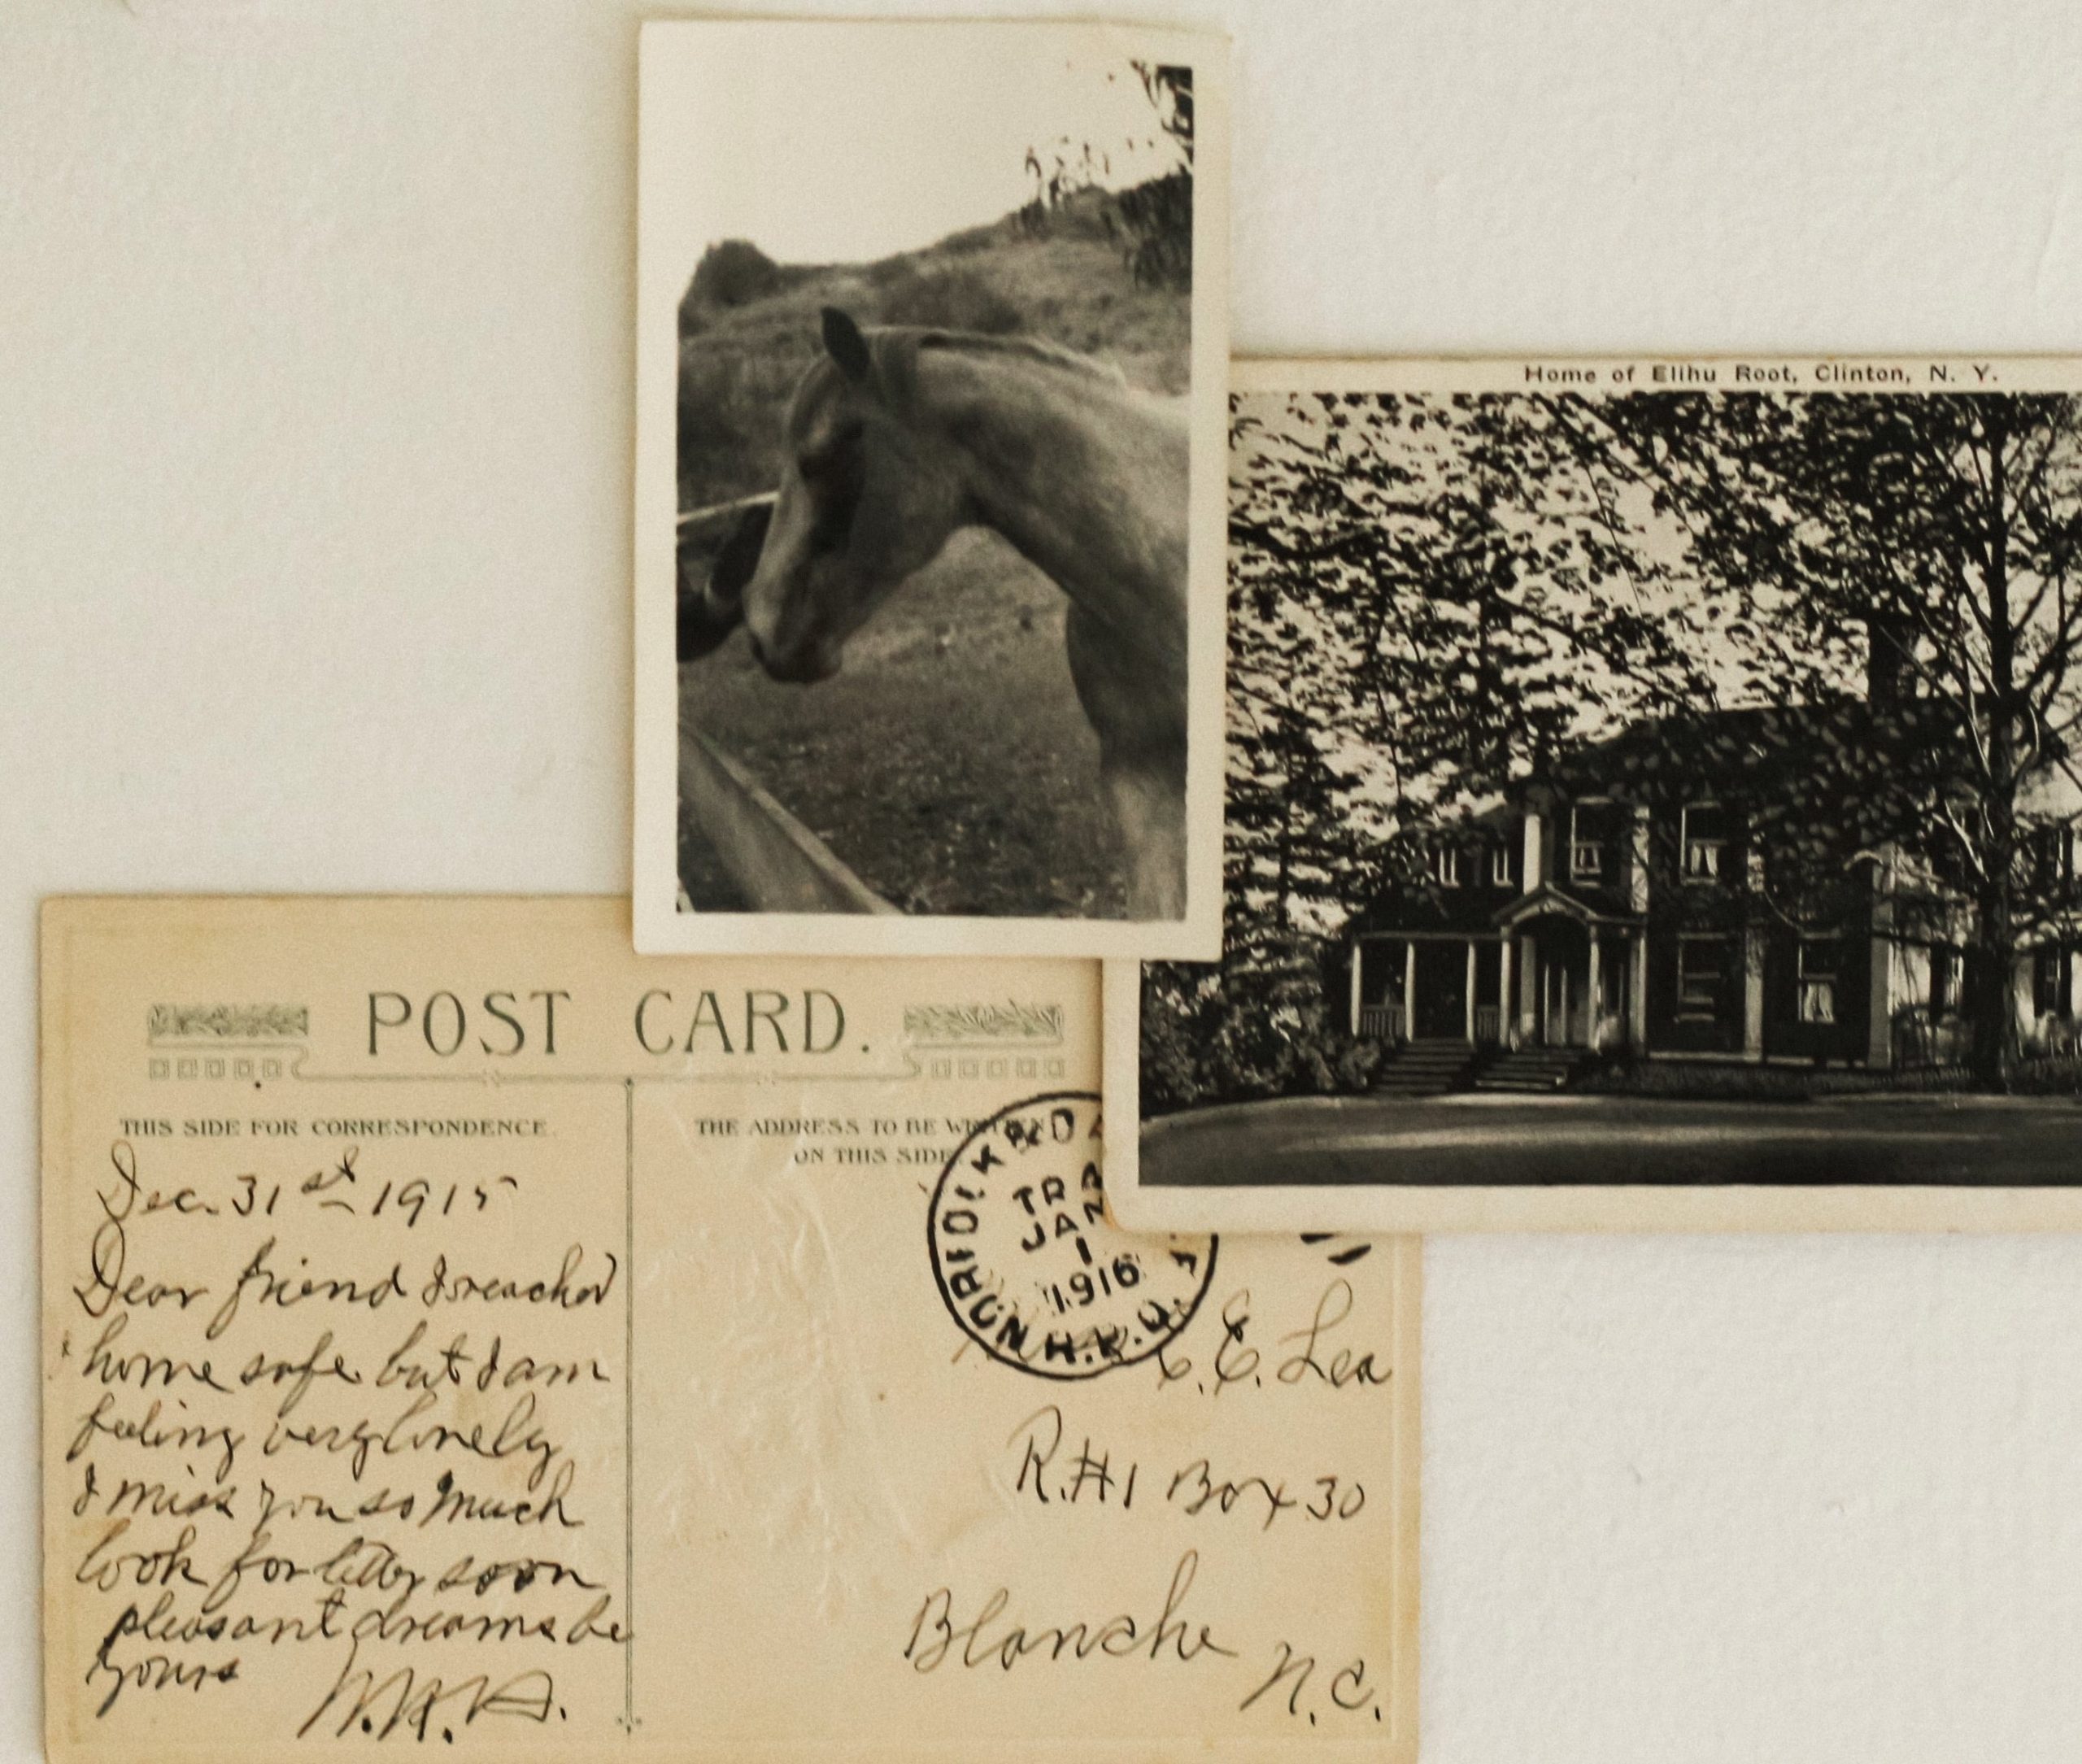 Home of Elihu Root, Clinton, N. Y.
POST CARD.
THIS SIDE FOR CORRESPONDENCE.
THE ADDRESS TO BE WRITTEN
ON THIS SIDE
Dec. 31st 1915
Dear friend I reached
home safe but I am
feeling very lonely
I miss you so much
look for letter soon
pleasant dreams be
yours
NORFOLK
TR
JAN
1
1916
E. Lea
R.#1 Box 30
Blanche
N.C.